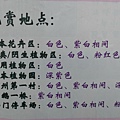 赏地点：
本花卉区：白色、紫白相间
典/阴生植物区：白色、粉红色
用植物区：白色
本植物区：深紫色
州第一桥：白色、紫白相间
门停车场：白色、紫白相间